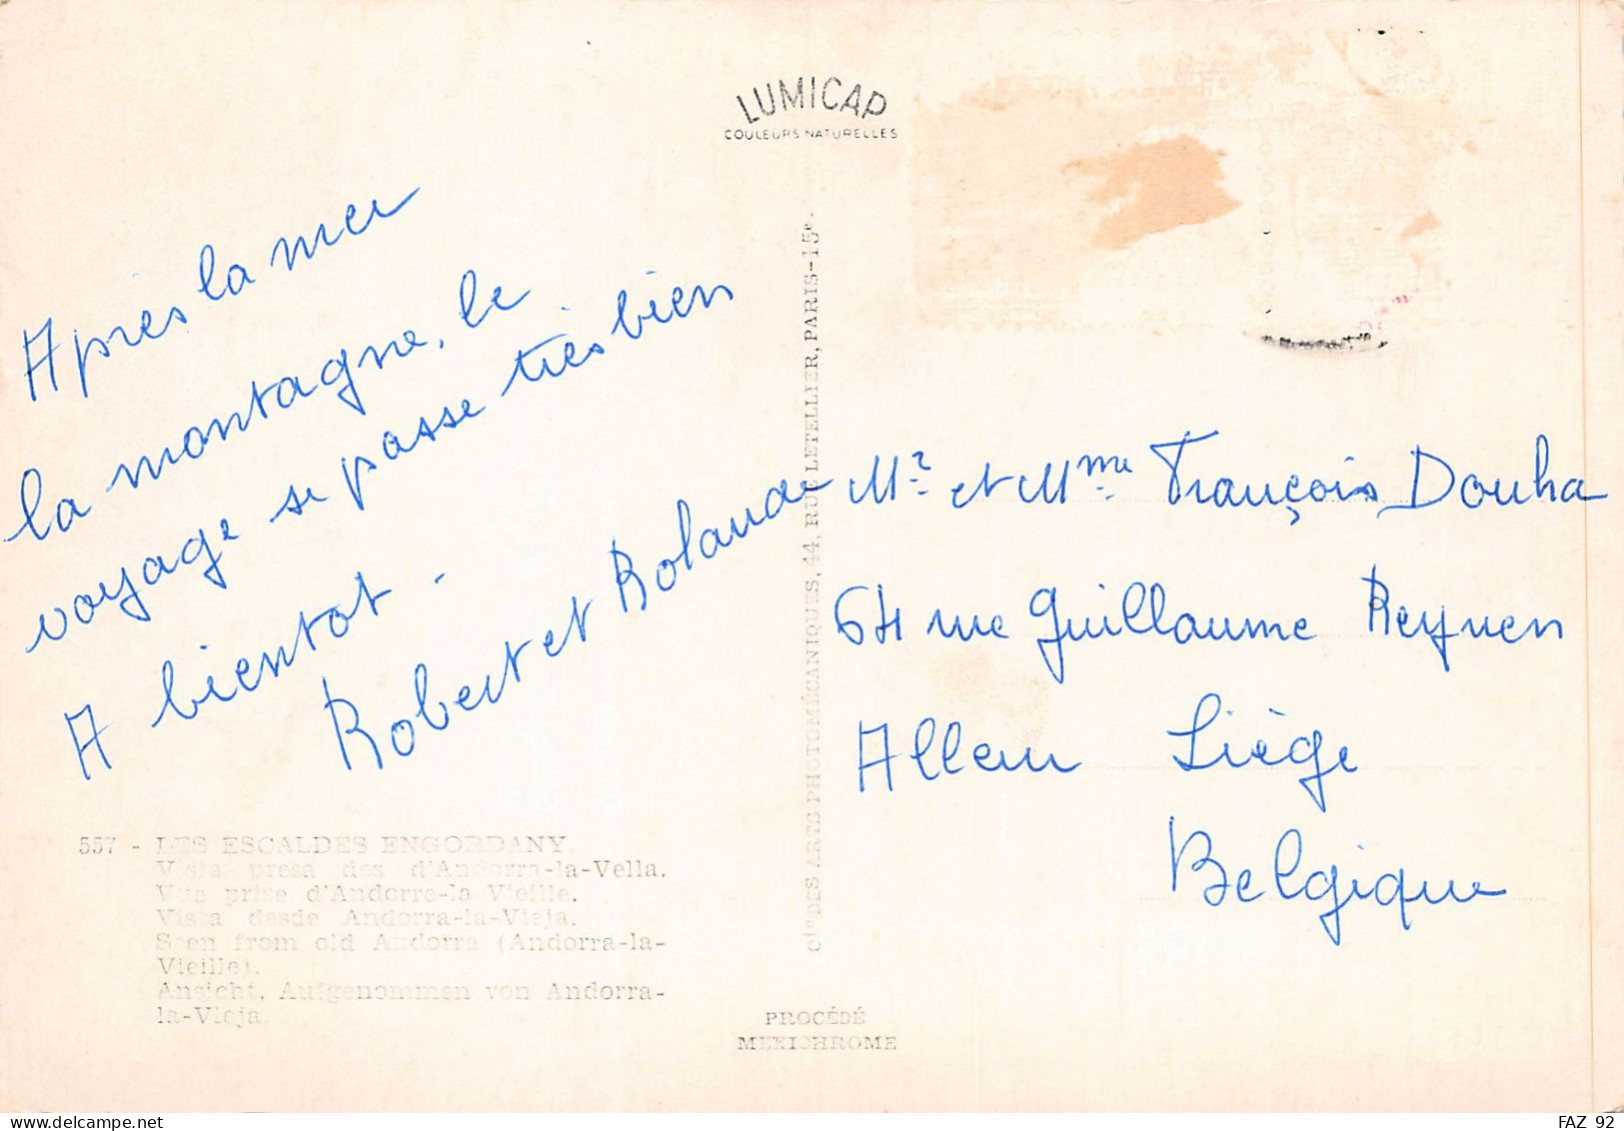 LUMICAP
COULEURS NATURELLES
Après la mer
la montagne, le
voyage se passe très bien
A bientot -
Robert et Rolande
Mr et Mme François Douha
64 rue Guillaume Reynen
Alleur Liège
Belgique
557 - LES ESCALDES ENGORDANY.
Vista presa des d'Andorra-la-Vella.
Vue prise d'Andorre-la Vieille.
Vista desde Andorra-la-Vieja.
Seen from old Andorra (Andorra-la-
Vieille).
Ansicht, Aufgenommen von Andorra-
la-Vieja.
Cie DES ARTS PHOTOMÉCANIQUES, 44, RUE LETELLIER, PARIS-15e.
PROCÉDÉ
MEXICHROME
FAZ 92